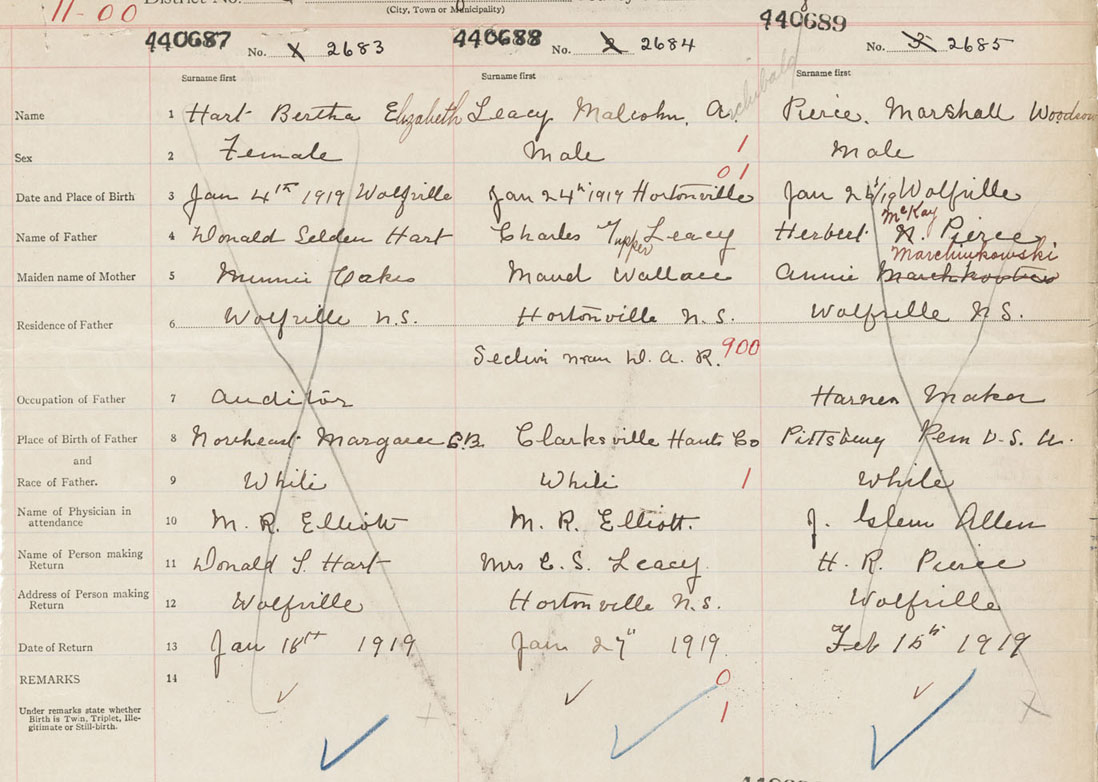 11-00 District No.
(City, Town or Municipality)
440687 No. X 2683 440688 No. 2 2684 440689 No. 3 2685
Surname first Surname first Surname first
Archibald
Name 1 Hart Bertha Elizabeth Leacy, Malcolm, A. Pierce, Marshall Woodrow
Sex 2 Female Male 1 Male
01
Date and Place of Birth 3 Jan 4th 1919 Wolfville Jan 24th 1919 Hortonville Jan 24/19 Wolfville
McKay
Name of Father 4 Donald Selden Hart Charles Tupper Leacy Herbert R. Pierce
Marchinkowski
Maiden name of Mother 5 Minnie Oakes Maud Wallace Annie
Residence of Father 6 Wolfville N.S. Hortonville N.S. Wolfville N.S.
Section man D. A. R. 900
Occupation of Father 7 Auditor Harness Maker
Place of Birth of Father 8 Northeast Margaree C.B. Clarksville Hants Co Pittsburg Penn U.S.A.
and
Race of Father. 9 White White 1 White
Name of Physician in
attendance 10 M. R. Elliott M. R. Elliott. J. Glenn Allen
Name of Person making
Return 11 Donald S. Hart Mrs C. S. Leacy. H. R. Pierce
Address of Person making
Return 12 Wolfville Hortonville N.S. Wolfville
Date of Return 13 Jan 18th 1919 Jan 27" 1919. Feb 15th 1919
REMARKS 14
0
Under remarks state whether
Birth is Twin, Triplet, Ille-
gitimate or Still-birth.
1